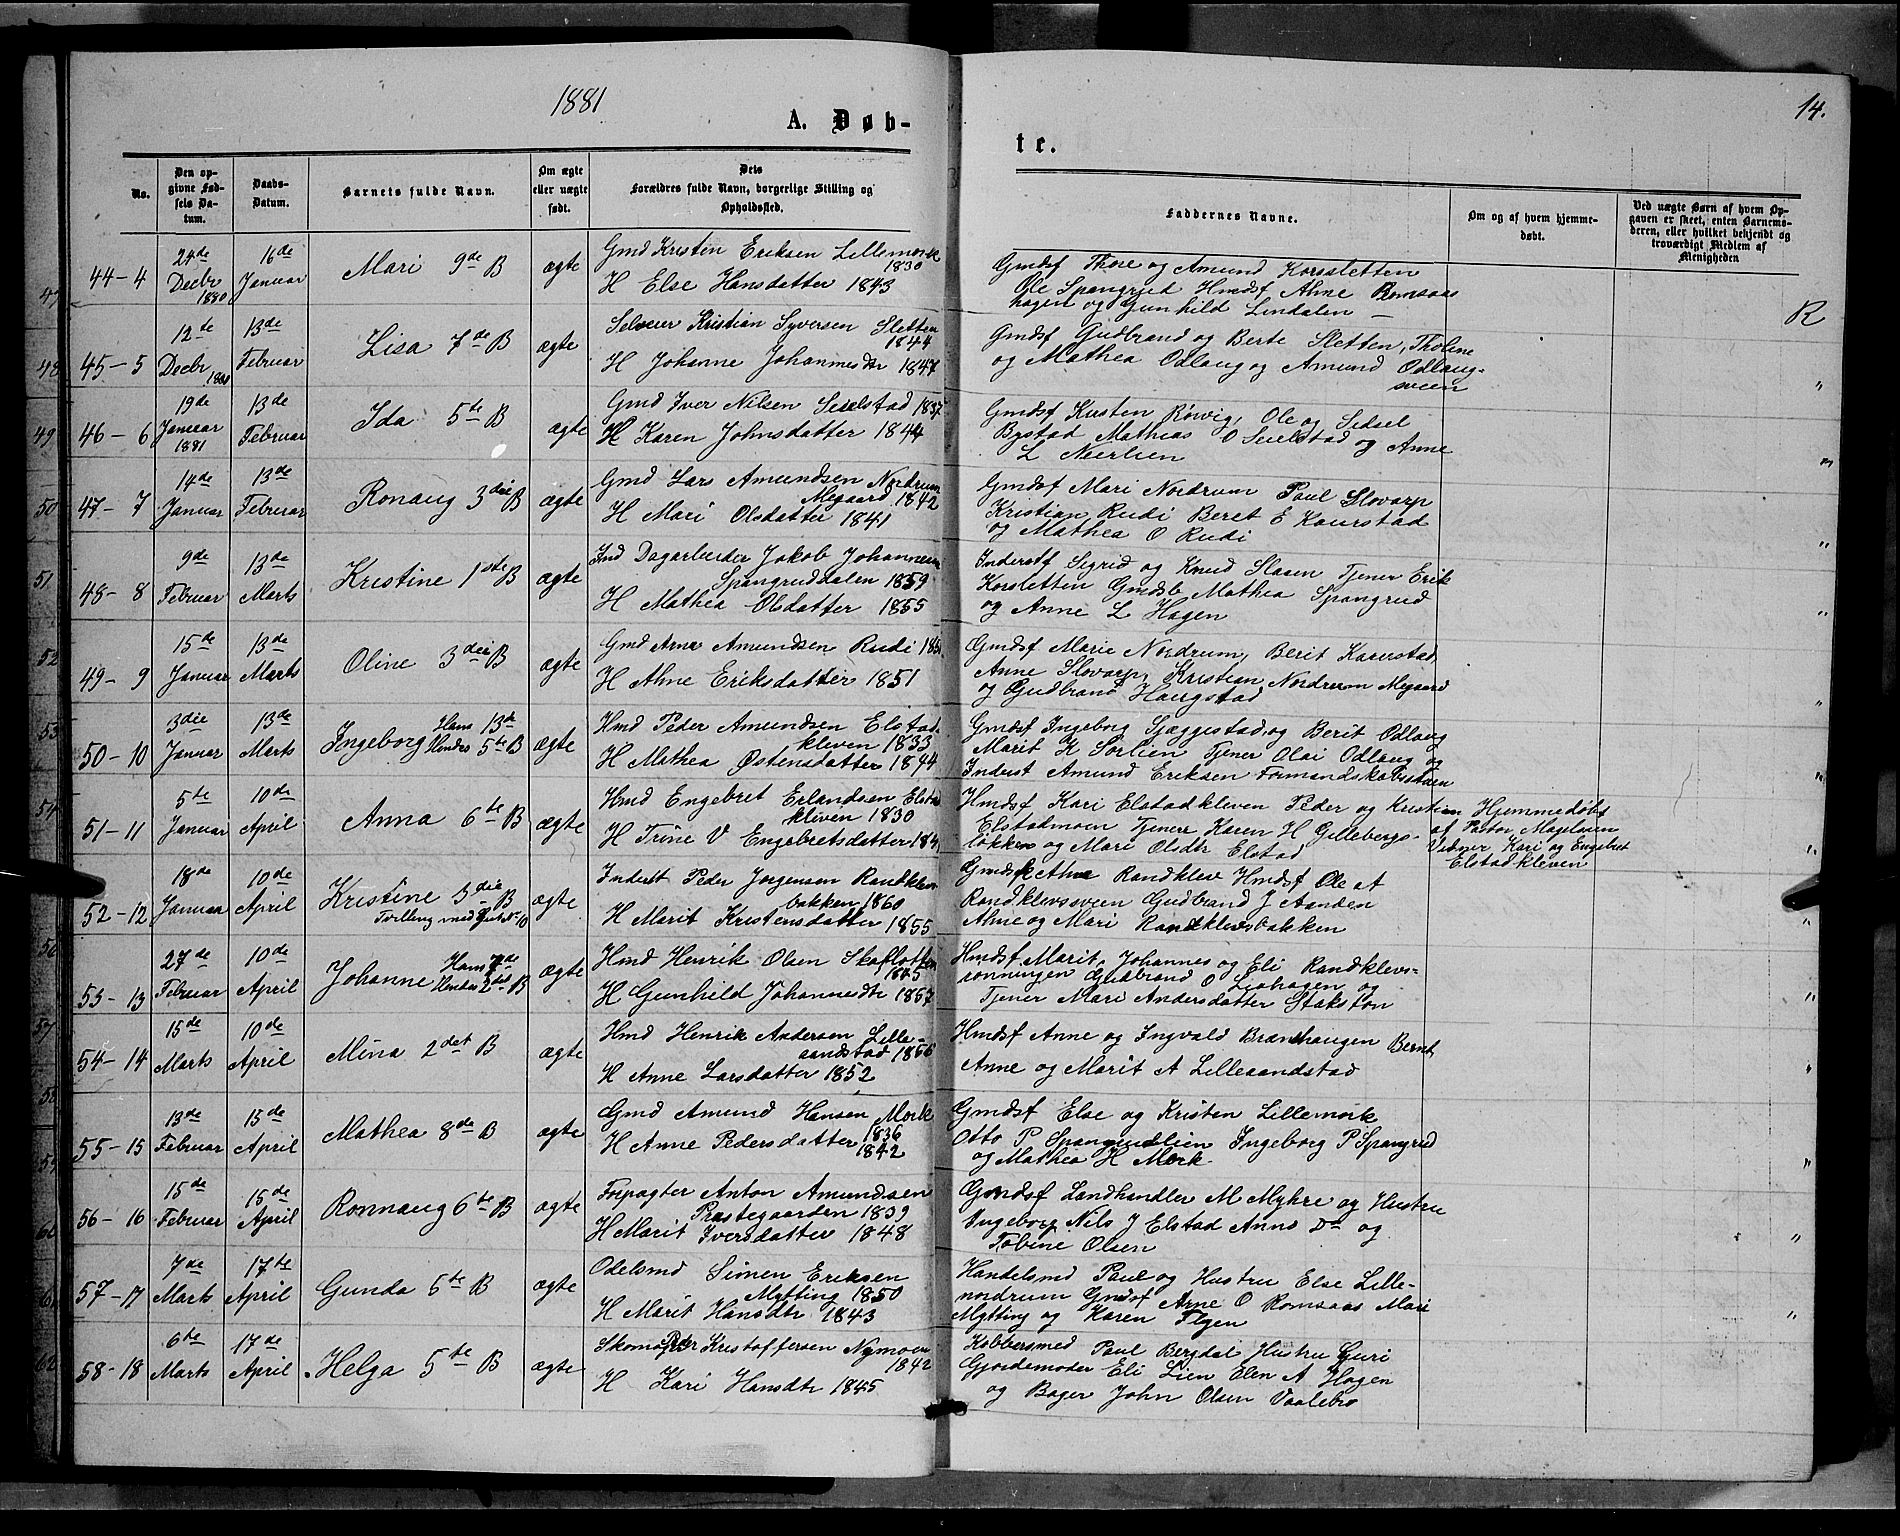 1881
14.
A. Døb-
te.
No.
Den op-
givne Fød-
sels Da-
tum.
Daabs-
Datum.
Barnets fulde Navn.
Om ægte
eller uægte
født.
Dets
Forældres fulde Navn, borgerlige Stilling og
Opholdssted.
Faddernes Navne.
Om og af hvem hjemme-
døbt.
Ved uægte Børn af hvem Op-
gaven er skeet, enten Barnemo-
deren, eller hvilket bekjendt og
troværdigt Medlem af
Menigheden
44-4
24de
Decbr
1880
16de
Januar
Mari 9de B
ægte
Gmd Kristen Eriksen Lillemork
1830
H Else Hansdatter 1843
Gmdsf Thore og Amund Korsletten
Ole Spangrud Hmdsf Ahne Romsaas
hagen og Gunhild Lindalen
R
45-5
12te
Decbr
1880
13de
Februar
Lisa 7de B
ægte
Selveier Kristian Syversen Sletten
1844
H Johanne Johannesdtr 1847
Gmdsf Gudbrand og Berte Sletten, Tholine
og Mathea Odlaug og Amund Odlaug-
sveen
46-6
19de
Januar
1881
13de
Februar
Ida 5te B
ægte
Gmd Iver Nilsen Seielstad 1837
H Karen Johnsdatter 1844
Gmdsf Kristen Rørvig, Ole og Sidsel
Bystad Mathias O Seielstad og Anne
L Neerlien
47-7
14de
Januar
13de
Februar
Ronaug 3die B
ægte
Gmd Lars Amundsen Nordrum
Megaard 1842
H Mari Olsdatter 1841
Gmdsf Mari Nordrum Paul Slovarp
Kristian Rudi Beret E Kaurstad
og Mathea O Rudi
48-8
9de
Februar
13de
Marts
Kristine 1ste B
ægte
Ind Dagarbeider Jakob Johannesen
Spangruddalen 1859
H Mathea Olsdatter 1855
Inderstf Sigrid og Knud Slaaen Tjener Erik
Korsletten Gmdsb Mathea Spangrud
og Anne L Hagen
49-9
15de
Januar
13de
Marts
Oline 3die B
ægte
Gmd Arne Amundsen Rudi
H Ahne Eriksdatter 1851
Gmdsf Marie Nordrum, Berit Kaurstad,
Anne Slovarp, Kristian Nordrum Megaard
og Gudbrand Haugstad
50-10
3die
Januar
13de
Marts
Ingeborg Hans 13de
Hendes 5te B
ægte
Hmd Peder Amundsen Elstad
kleven 1833
H Mathea Østensdatter 1844
Gmdsf Ingeborg Sjaggestad, og Berit Odlaug
Marit K Sorlien Tjener Olai Odlaug og
Inderst Amund Eriksen Formandskabsstuen
51-11
5te
Januar
10de
April
Anna 6te B
ægte
Hmd Engebret Erlandsen Elstad
kleven 1830
H Trine V Engebretsdatter
Hmdsf Kari Elstadkleven Peder og Kristian
Elstadmoen Tjenere Karen H Gillebergs-
løkken og Mari Olsdtr Elstad
Hjemmedøbt
af Pastor Magelssen
Vidner Kari og Engebret
Elstadkleven
52-12
18de
Januar
10de
April
Kristine 3die B
Tvilling med
ægte
Inderst Peder Jørgensen Randklev
bakken 1860
H Marit Kristensdatter 1855
Gmdsk Ahne Randklev Hmdsf Ole at
Randklevssveen Gudbrand J Aanden
Ahne og Mari Randklevsbakken
53-13
27de
Februar
10de
April
Johanne Hans 7de
Hendes 2det B
ægte
Hmd Henrik Olsen Skaflotten
1845
H Gunhild Johannesdtr 1857
Hmdsf Marit, Johannes og Eli Randklevs-
rønningen Gudbrand O Liahagen og
Tjener Mari Andersdatter Stakston
54-14
15de
Marts
10de
April
Mina 2det B
ægte
Hmd Henrik Andersen Lille-
aandstad 1856
H Anne Larsdatter 1852
Hmdsf Anne og Ingvald Brændhaugen Bernt
Anne og Marit A Lilleaandstad
55-15
13de
Februar
15de
April
Mathea 8de B
ægte
Gmd Amund Hansen Mork
1836
H Anne Pedersdatter
1842
Gmdsf Else og Kristen Lillemork
Otto P Spangrudlien Ingeborg P Spangrud
og Mathea H Mork
56-16
15de
Februar
15de
April
Ronnaug 6te B
ægte
Forpagter Anton Amundsen
Præstegaarden 1839
H Marit Iversdatter 1848
Gmdsf Landhandler M Myhre og Hustru
Ingeborg Nils J Elstad Anne Do og
Tobine Olsen
57-17
7de
Marts
17te
April
Gunda 5te B
ægte
Odelsmd Simen Eriksen
Mytting 1850
H Marit Hansdtr 1843
Handelsmd Paul og Hustru Else Lille-
nordrum Gmdsf Arne O Romsaas Mari
Mytting og Karen Flyen
58-18
6te
Marts
17de
April
Helga 5te B
ægte
Skomager Kristoffersen Nymoen
1842
H Kari Hansdtr 1845
Kobbersmed Paul Bergdal Hustru Guri
Gjordemoder Eli Lien Elen A Hagen
og Bager John Olsen Vaalebro